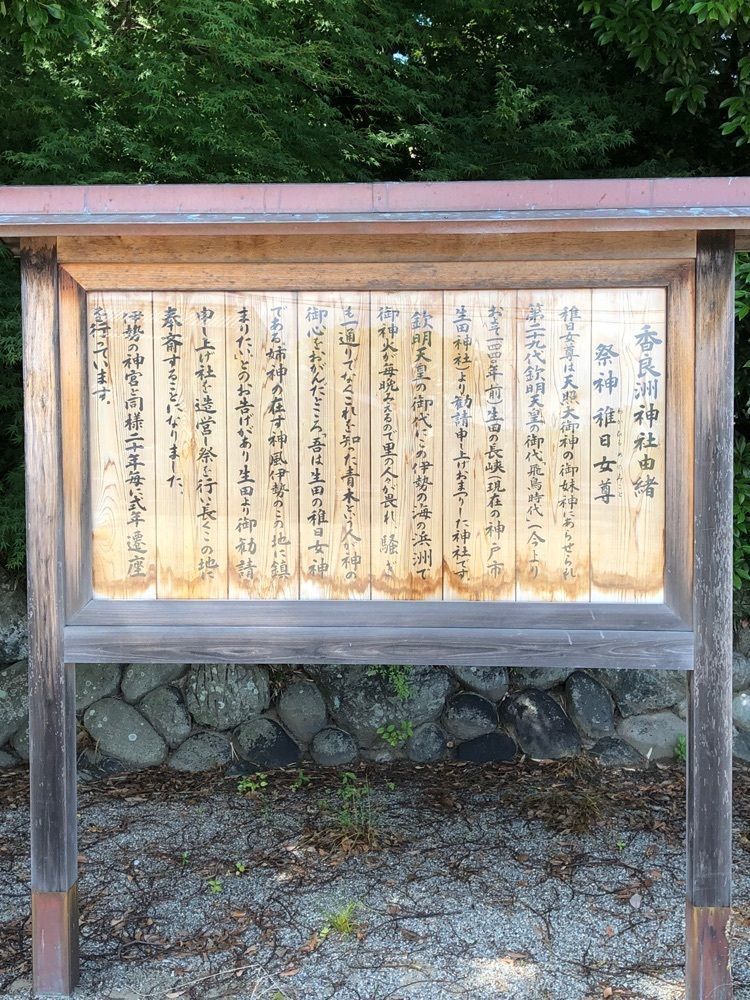 香良洲神社由緒
祭神 稚日女尊
わかひるめのみこと
稚日女尊は天照大御神の御妹神にあらせられ
第二十九代欽明天皇の御代飛鳥時代(今より
およそ一四四〇年前)生田の長峡(現在の神戸市
生田神社)より勧請申し上げおまつりした神社です
欽明天皇の御代にこの伊勢の海の浜洲で
御神火が毎晩みえるので里の人々畏れ騒ぎ
も一通りでなくこれを知った青木という人が神の
御心をおがんだところ「吾は生田の稚日女神
である姉神の在す神風伊勢のこの地に鎮
まりたいとのお告げがあり生田より御勧請
申し上げ社を造営し祭を行い長くこの地に
奉斎することになりました、
伊勢の神宮と同様二十年毎に式年遷座
を行っています。